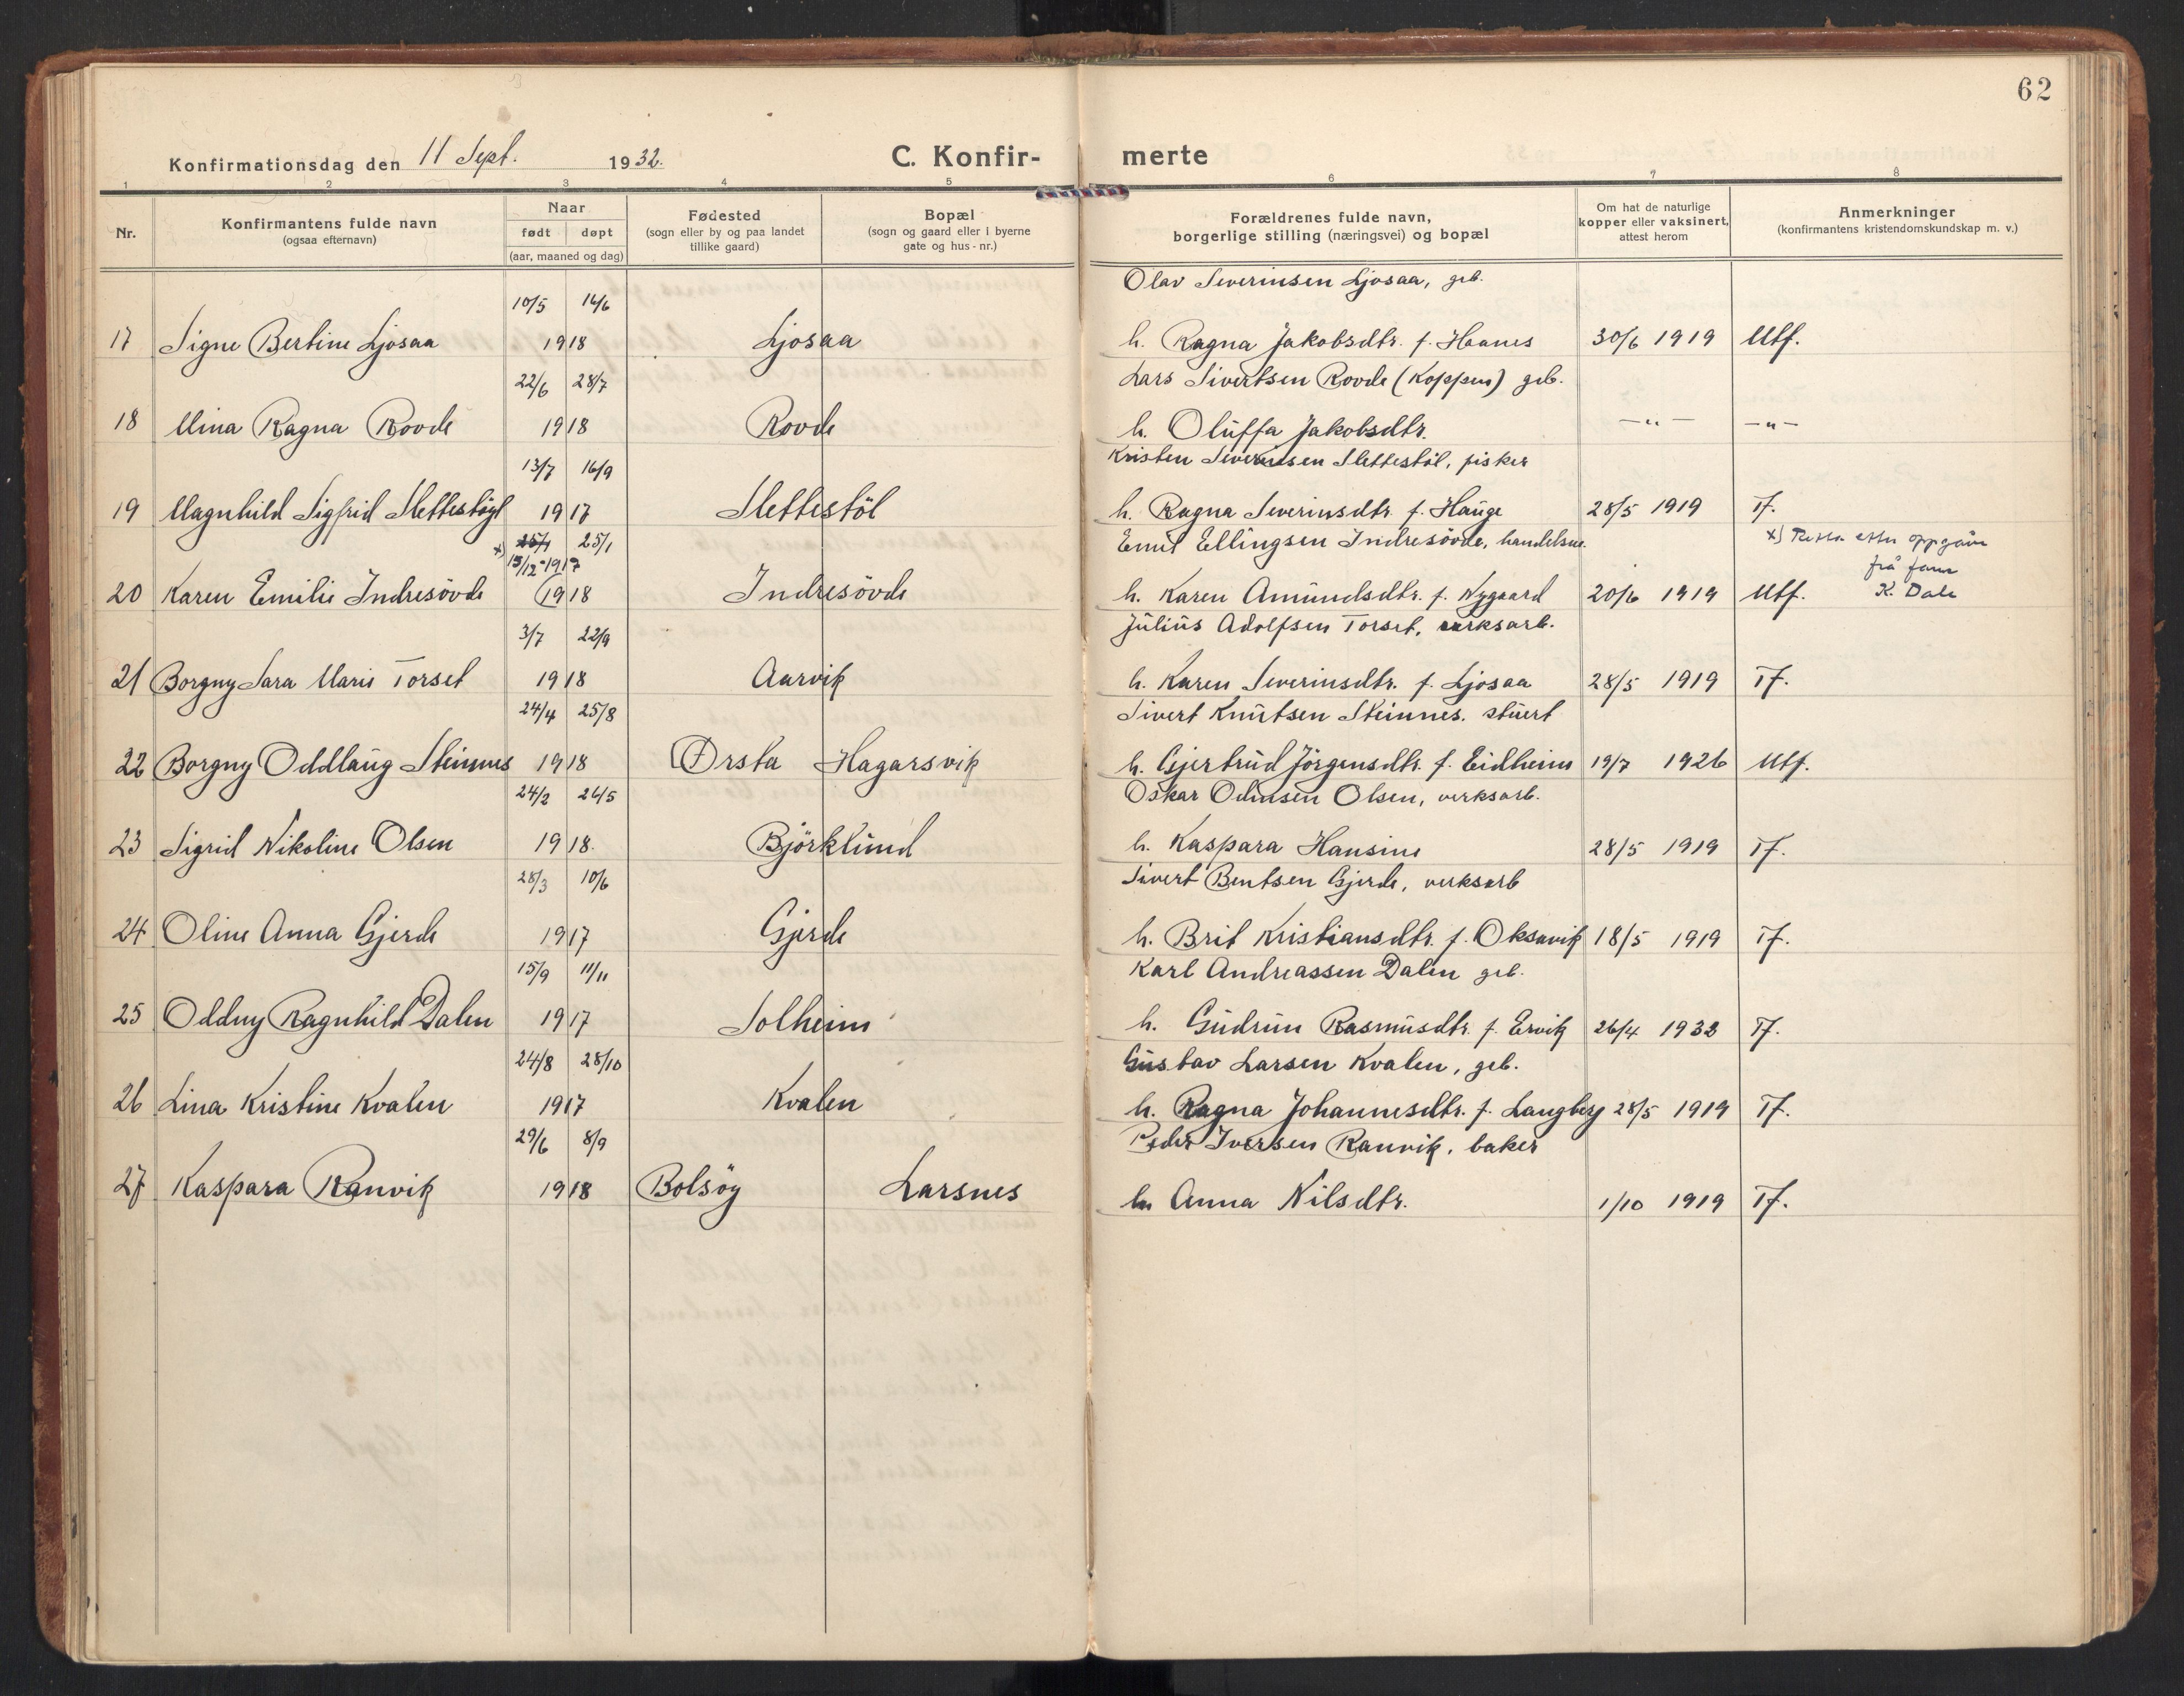 62
Konfirmationsdag den 11 Sept. 1932.
C. Konfir-
merte
1 2 3 4 5 6 7 8
Nr.
Konfirmantens fulde navn
(ogsaa efternavn)
Naar
født døpt
(aar, maaned og dag)
Fødested
(sogn eller by og paa landet
tillike gaard)
Bopæl
(sogn og gaard eller i byerne
gate og hus - nr.)
Forældrenes fulde navn,
borgerlige stilling (næringsvei) og bopæl
Om hat de naturlige
kopper eller vaksinert,
attest herom
Anmerkninger
(konfirmantens kristendomskundskap m. v.)
10/5 16/6 Olav Severinsen Ljosaa, geb.
17 Signe Bertine Ljosaa 1918 Ljosaa h. Ragna Jakobsdtr. f. Haanes 30/6 1919 Utf.
22/6 28/7 Lars Sivertsen Rovde (Koppen) geb.
18 Mina Ragna Rovde 1918 Rovde h. Oluffa Jakobsdtr. —"— —"—
13/7 16/9 Kristen Severinsen Slettestöl, fisker
19 Magnhild Sigfrid Slettestöyl 1917 Slettestöl h. Ragna Severinsdtr f. Hauge 28/5 1919 Tf.
x) 25/1 25/1 Emil Ellingsen Indresövde, handelsm. x) Retta etter oppgåve
15/12-1917 frå fam
20 Karen Emilie Indresövde (1918 Indresövde h. Karen Amundsdtr. f. Nygaard 20/6 1919 Utf. K. Dale
3/7 22/9 Julius Adolfsen Torset, verksarb.
21 Borgny Sara Marie Torset 1918 Aarvik h. Karen Severinsdtr. f. Ljosaa 28/5 1919 Tf.
24/4 25/8 Sivert Knutsen Steinnes. stuert
22 Borgny Oddlaug Steinnes 1918 Ørsta Hagarsvik h. Gjertrud Jörgensdtr. f. Eidheim 19/7 1926 Utf.
24/2 26/5 Oskar Odinsen Olsen, verksarb.
23 Sigrid Nikoline Olsen 1918. Björklund h. Kaspara Hansine 28/5 1919 Tf.
28/3 10/6 Sivert Bentsen Gjerde, verksarb
24 Oline Anna Gjerde 1917 Gjerde h. Brit Kristiansdtr. f. Oksavik 18/5 1919 Tf.
15/9 11/11 Karl Andreassen Dalen geb.
25 Oddny Ragnhild Dalen 1917 Solheim h. Gudrun Rasmusdtr. f. Ervik 26/4 1932 Tf.
24/8 28/10 Gustav Larsen Kvalen, geb.
26 Lina Kristine Kvalen 1917 Kvalen h. Ragna Johannesdtr. f. Langberg 28/5 1919 Tf.
29/6 8/9 Peder Iversen Ranvik, baker
27 Kaspara Ranvik 1918 Bolsöy Larsnes h Anna Nilsdtr. 1/10 1919 Tf.